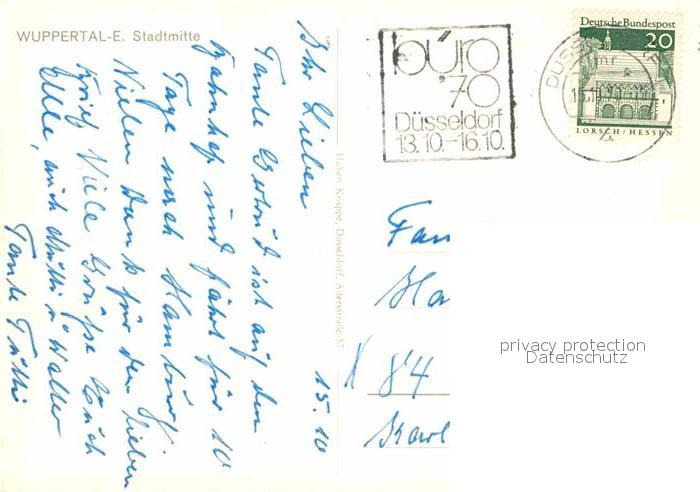 WUPPERTAL-E. Stadtmitte
15.10
Ihr Lieben
Tante Gertrud ist auf dem
Bahnhof und fährt für 10
Tage nach Hamburg.
Vielen Dank für den lieben
Brief. Viele Grüße Euch
Alle, auch Mutti u Walter
Tante Tutti
Hubert Knippe, Düsseldorf, Adersstraße 57
büro
'70
Düsseldorf
13.10.–16.10.
Deutsche Bundespost
20
LORSCH/HESSEN
Fam
Ha
84
Karl
privacy protection
Datenschutz